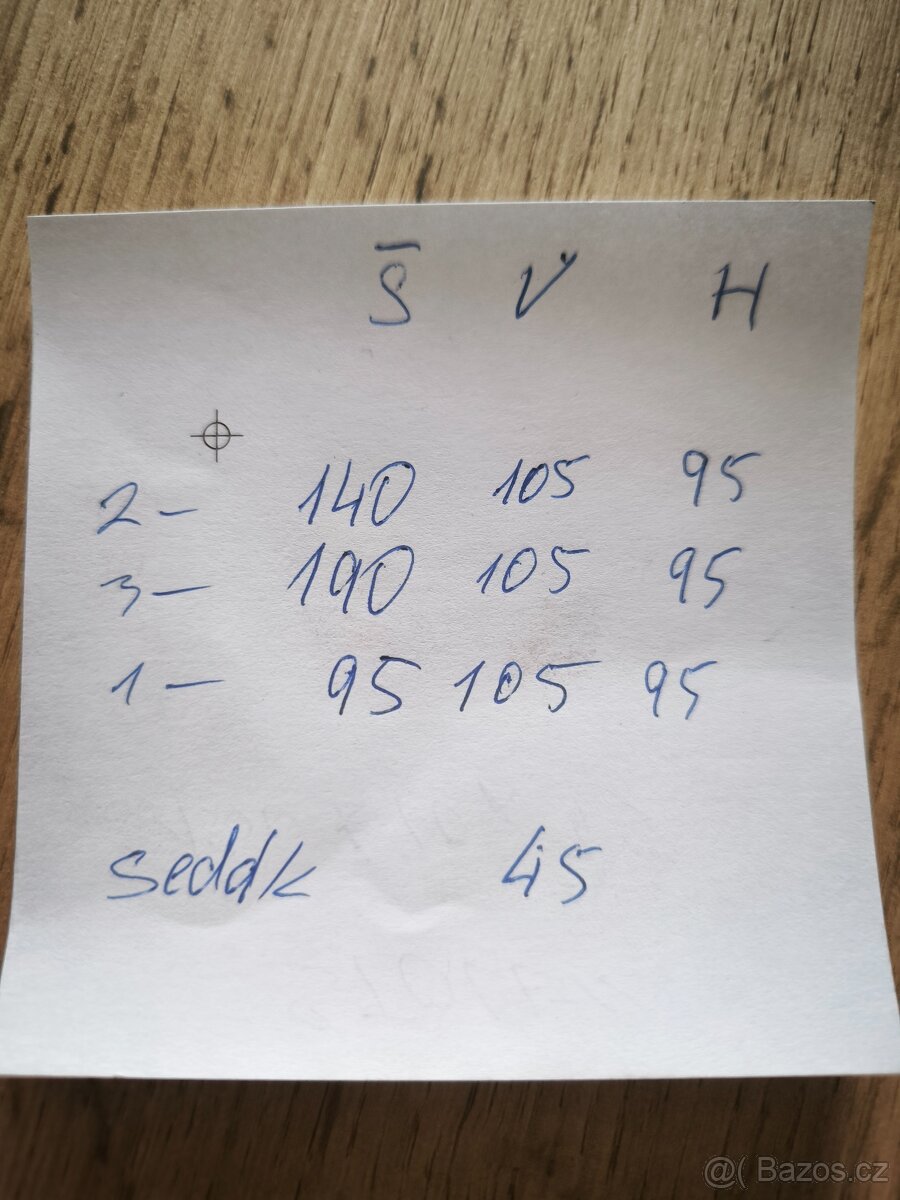 Š V H
2 - 140 105 95
3 - 190 105 95
1 - 95 105 95
sedák 45
@( Bazos.cz